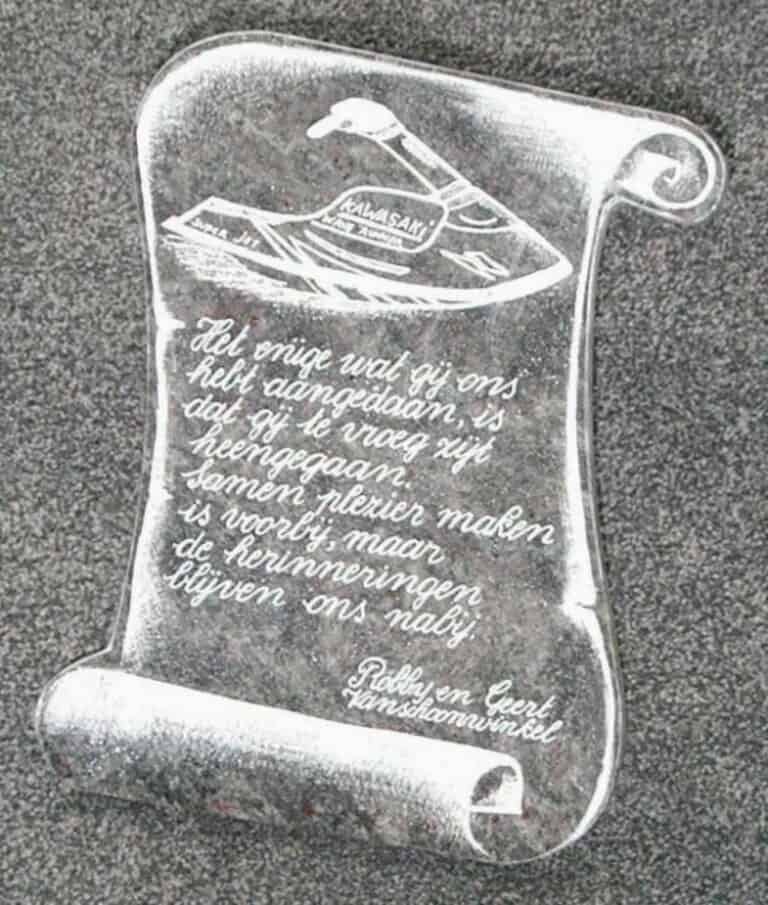 KAWASAKI
SUPER JET
Het enige wat gij ons
hebt aangedaan, is
dat gij te vroeg zijt
heengegaan.
Samen plezier maken
is voorbij, maar
de herinneringen
blijven ons nabij.
Robby en Geert
Vanschoonwinkel